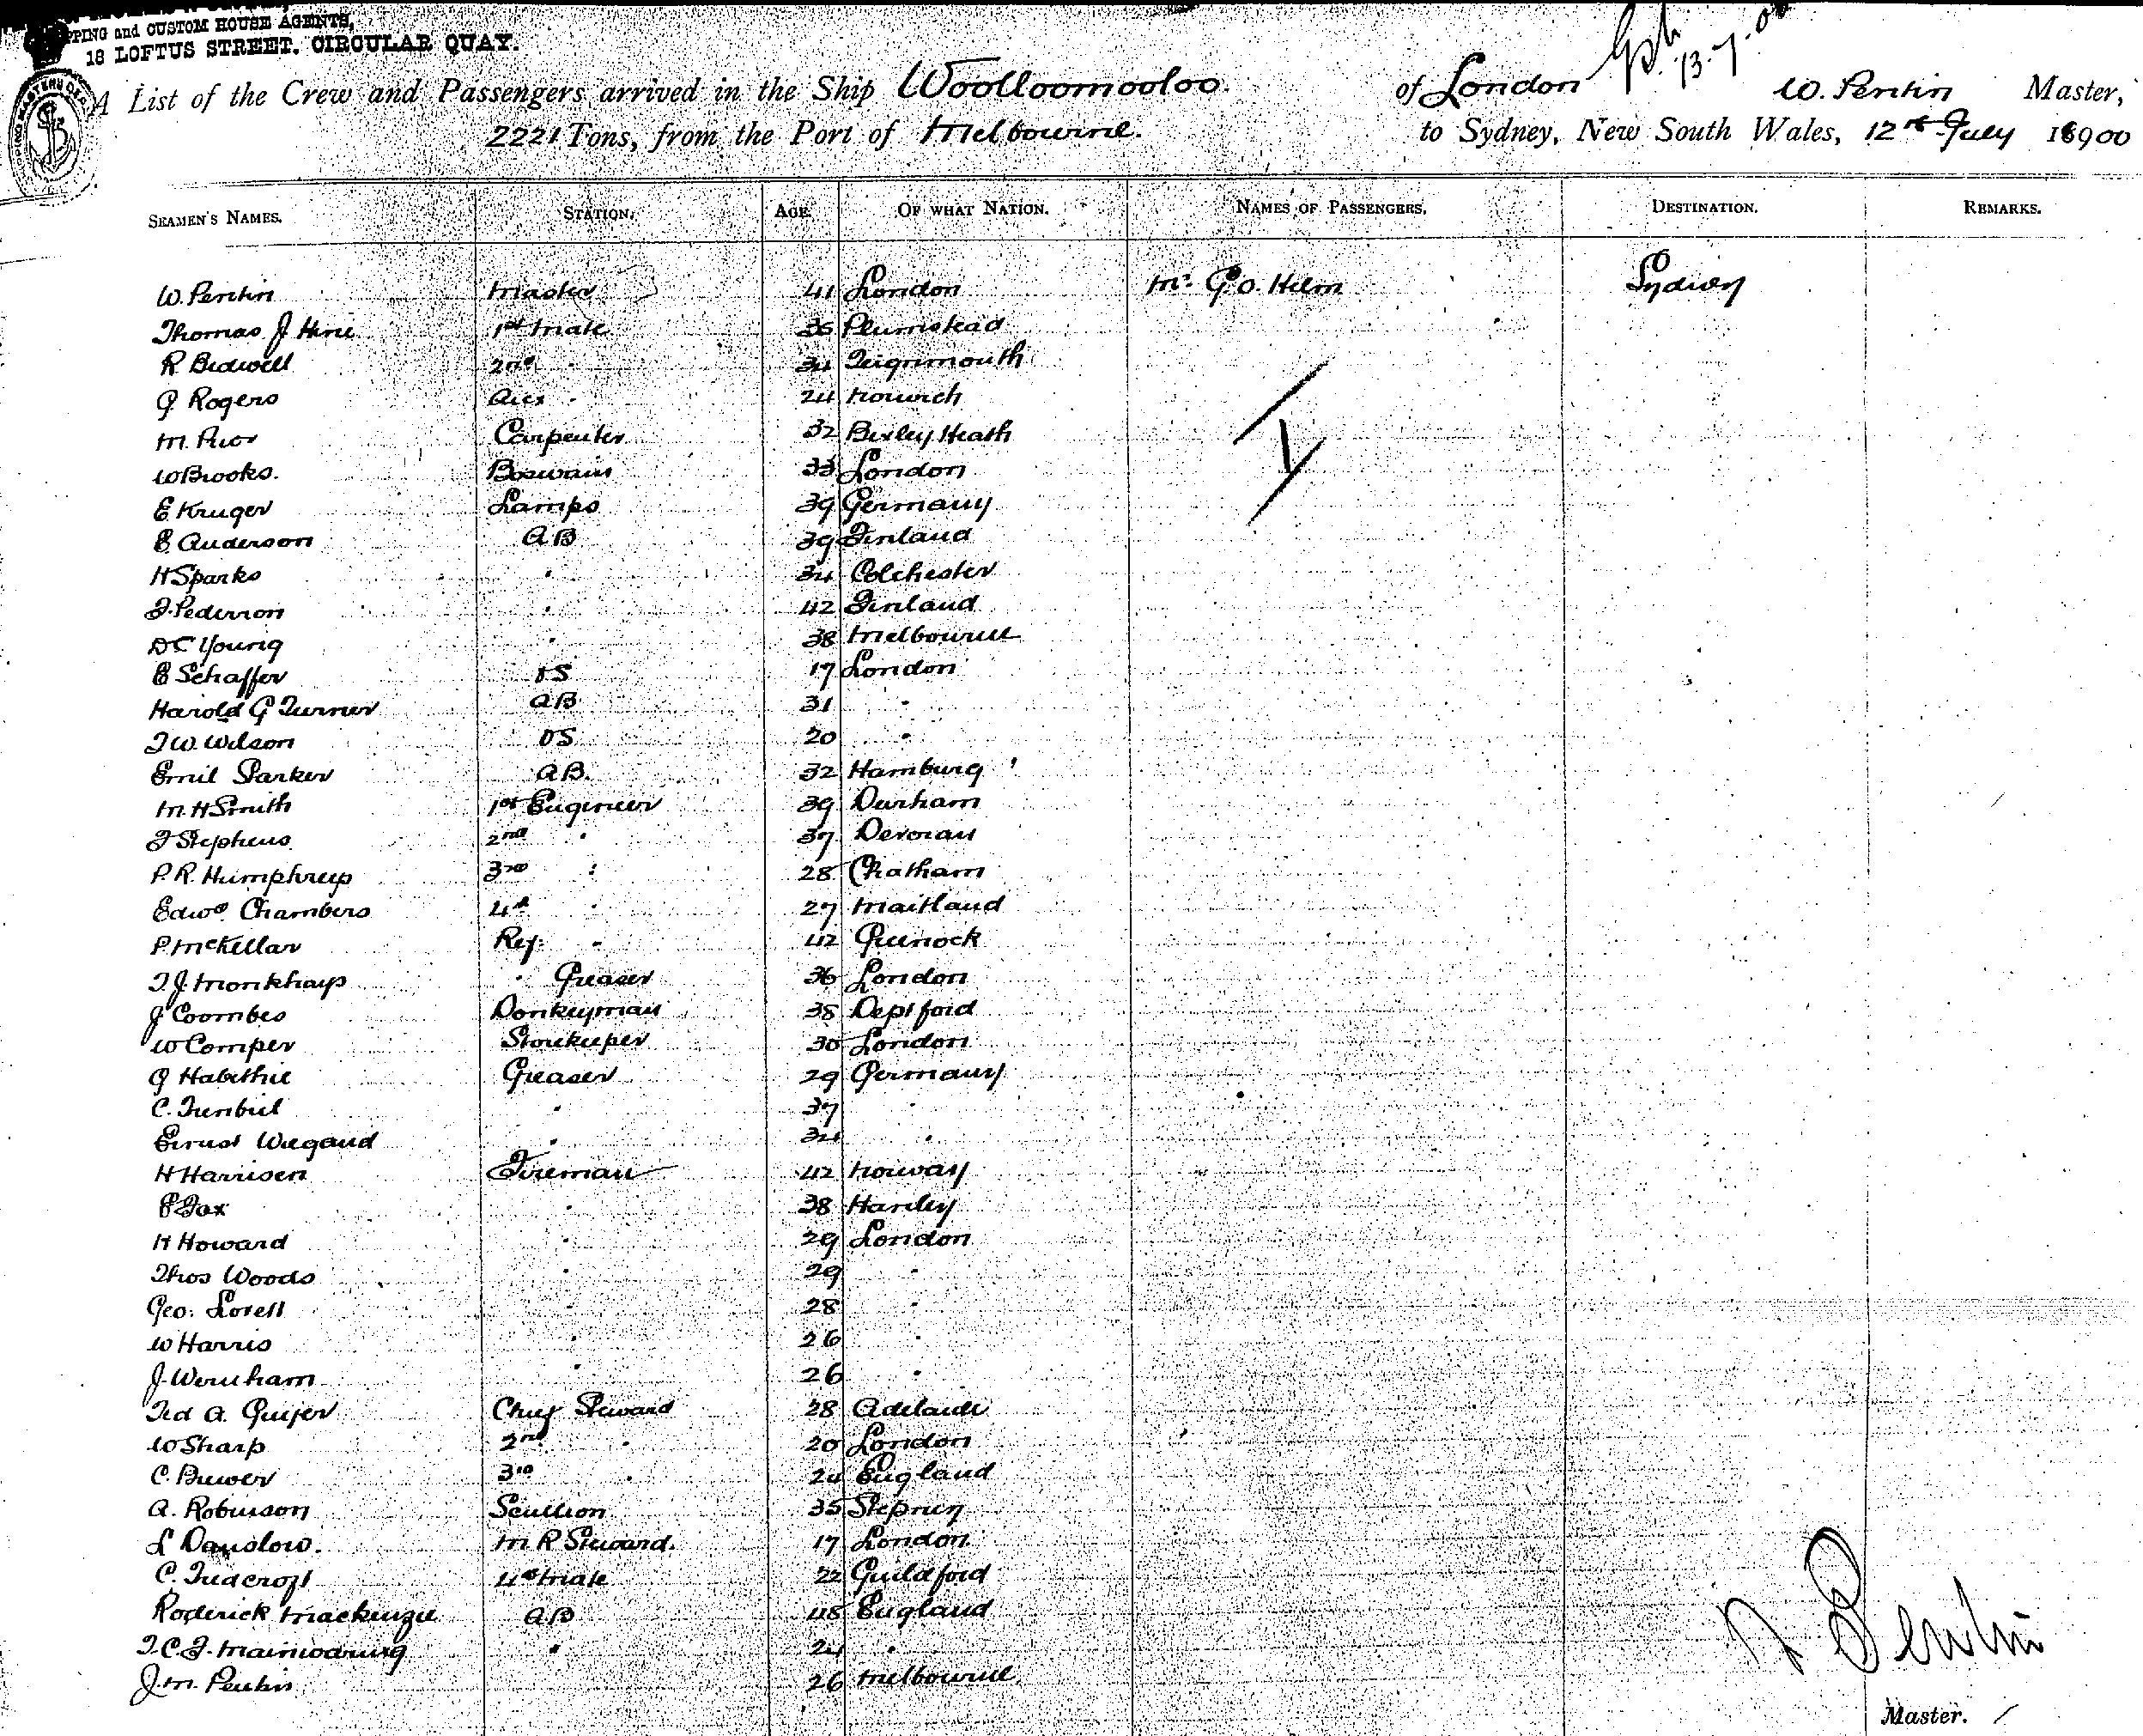 PPING and CUSTOM HOUSE AGENTS,
18 LOFTUS STREET, CIRCULAR QUAY.
13-7-00
A List of the Crew and Passengers arrived in the Ship Woolloomooloo of London W. Pentin Master,
2221 Tons, from the Port of Melbourne. to Sydney, New South Wales, 12th July 1900
SEAMEN'S NAMES. STATION. AGE. OF WHAT NATION. NAMES OF PASSENGERS. DESTINATION. REMARKS.
W. Pentin Master 41 London Mr. G.O. Helm Sydney
Thomas J Hine 1st Mate 35 Plumstead
R Bidwell 2nd " 34 Teignmouth
G Rogers 24 Norwich
M. Prior Carpenter 32 Bexley Heath
W Brooks. Boswain 33 London
E Kruger Lamps 39 Germany
E. Anderson AB 39 Finland
H Sparks " 34 Colchester
J. Pederson " 42 Finland
D C Young " 38 Melbourne
E Schaffer OS 17 London
Harold G Turner AB 31 "
J W Wilson OS 20 "
Emil Parker AB. 32 Hamburg
M. H Smith 1st Engineer 39 Durham
J Stephens 2nd " 37 Devoran
P. R. Humphreys 3rd " 28 Chatham
Edwd. Chambers 4th " 27 Maitland
P. McKellar Ref. " 42 Greenock
T. J. Monkhays " Greaser 36 London
J Coombes Donkeyman 38 Deptford
W Comper Storekeeper 30 London
G Habethie Greaser 29 Germany
C. " 37 "
Ernst Wiegand " 34 "
H Harrisen Fireman 42 Norway
P Fox " 38 Hanley
H Howard " 29 London
Thos Woods " 29 "
Geo: Lovell " 28 "
W Harris " 26 "
J. Wernham " 26 "
A. Chief Steward 28 Adelaide
W Sharp 2nd " 20 London
C. Brewer 3rd " 24 England
A. Robinson Scullion 35 Stepney
L Danslow. M R Steward. 17 London
C. 4th Mate 22 Guildford
Roderick Mackenzie AB 48 England
T. C. J. Mainwaring " 24 "
J. M. Pentin 26 Melbourne.
W Pentin
Master.